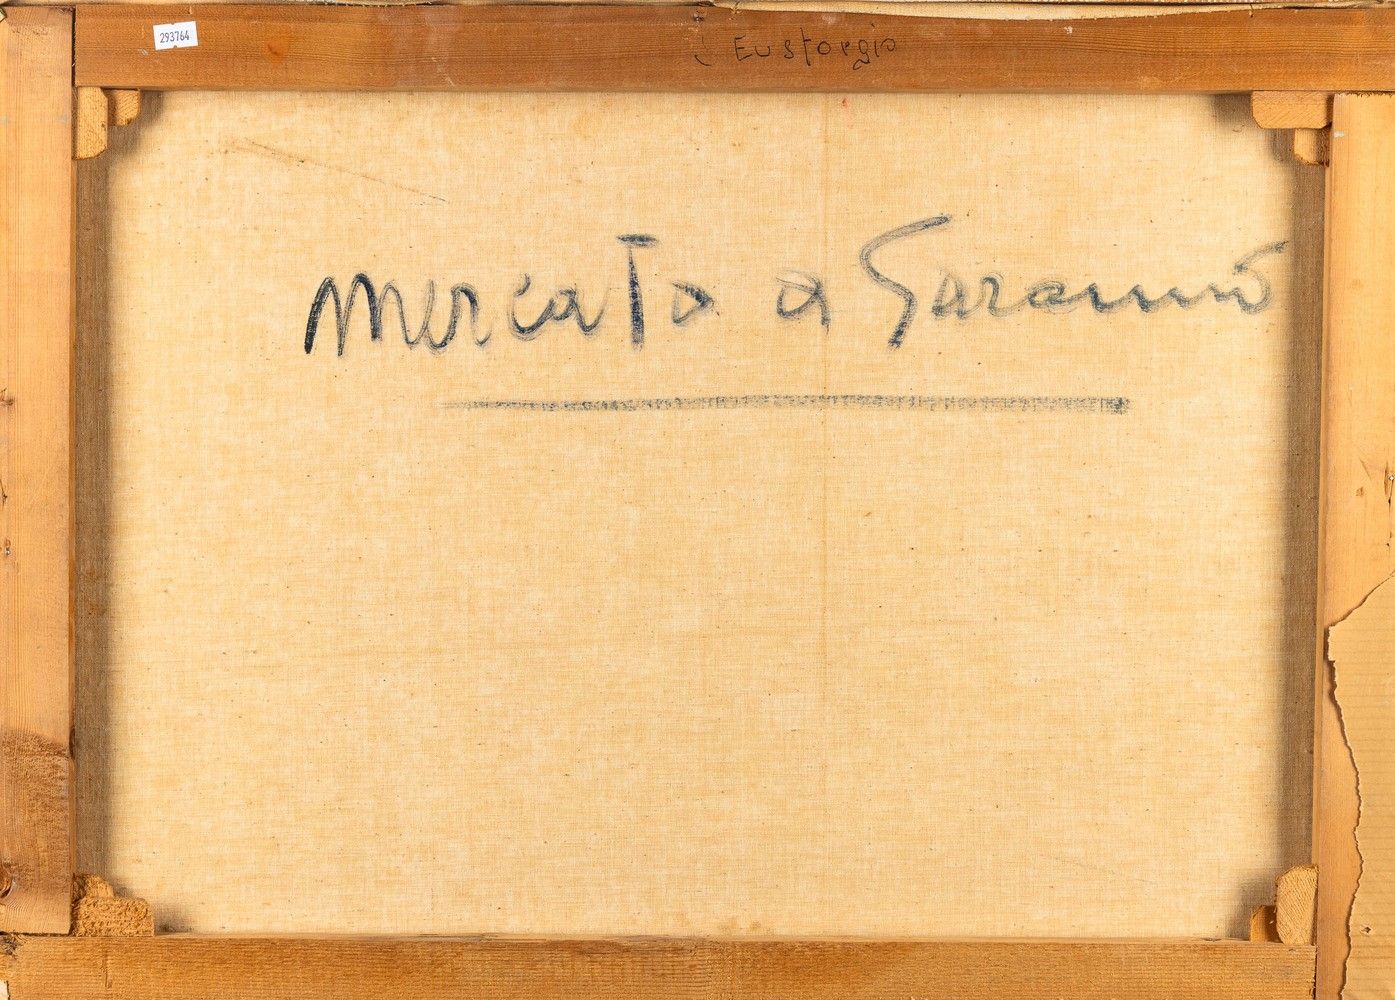 293764
Eustorgio
mercato a Saranno